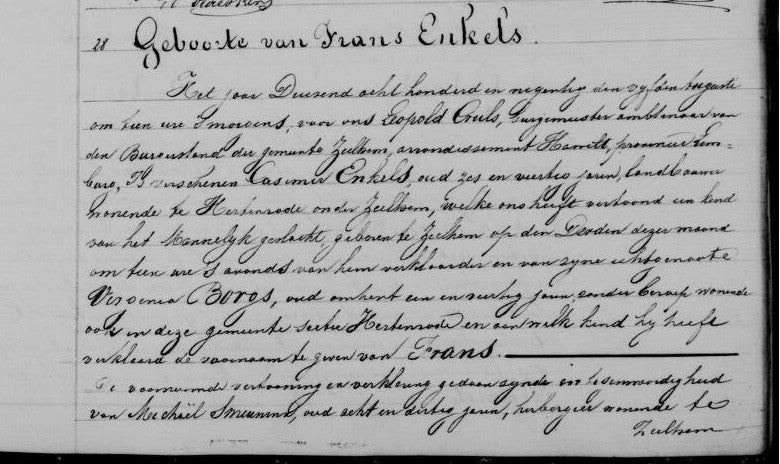 28 Geboorte van Frans Enkels.
Het jaar Duusend acht honderd en negentig den vyfden Augusti
om tien ure smorgens, voor ons Leopold Cruls, burgemeester ambtenaar van
den Burgerstand der gemeente Zeelhem, arrondissement Hasselt, provincie Lim-
burg, Is verschenen Casimir Enkels, oud zes en viertig jaren, landbouwer
wonende te Hertenrode onder Zeelhem, welke ons heeft vertoond een kind
van het Mannelyk geslacht, geboren te Zeelhem op den Derden dezer maand
om tien ure s'avonds van hem verklaarder en van zyne echtgenoote
Virginia Borgs, oud omtrent een en viertig jaren, zonder beroep wonende
ook in deze gemeente sectie Hertenrode en aan welk kind hy heeft
verklaard de voornaam te geven van Frans.
De voornoemde vertooning en verklaring gedaan zynde in tegenwoordigheid
van Michaël oud acht en dertig jaren, herbergier wonende te
Zeelhem